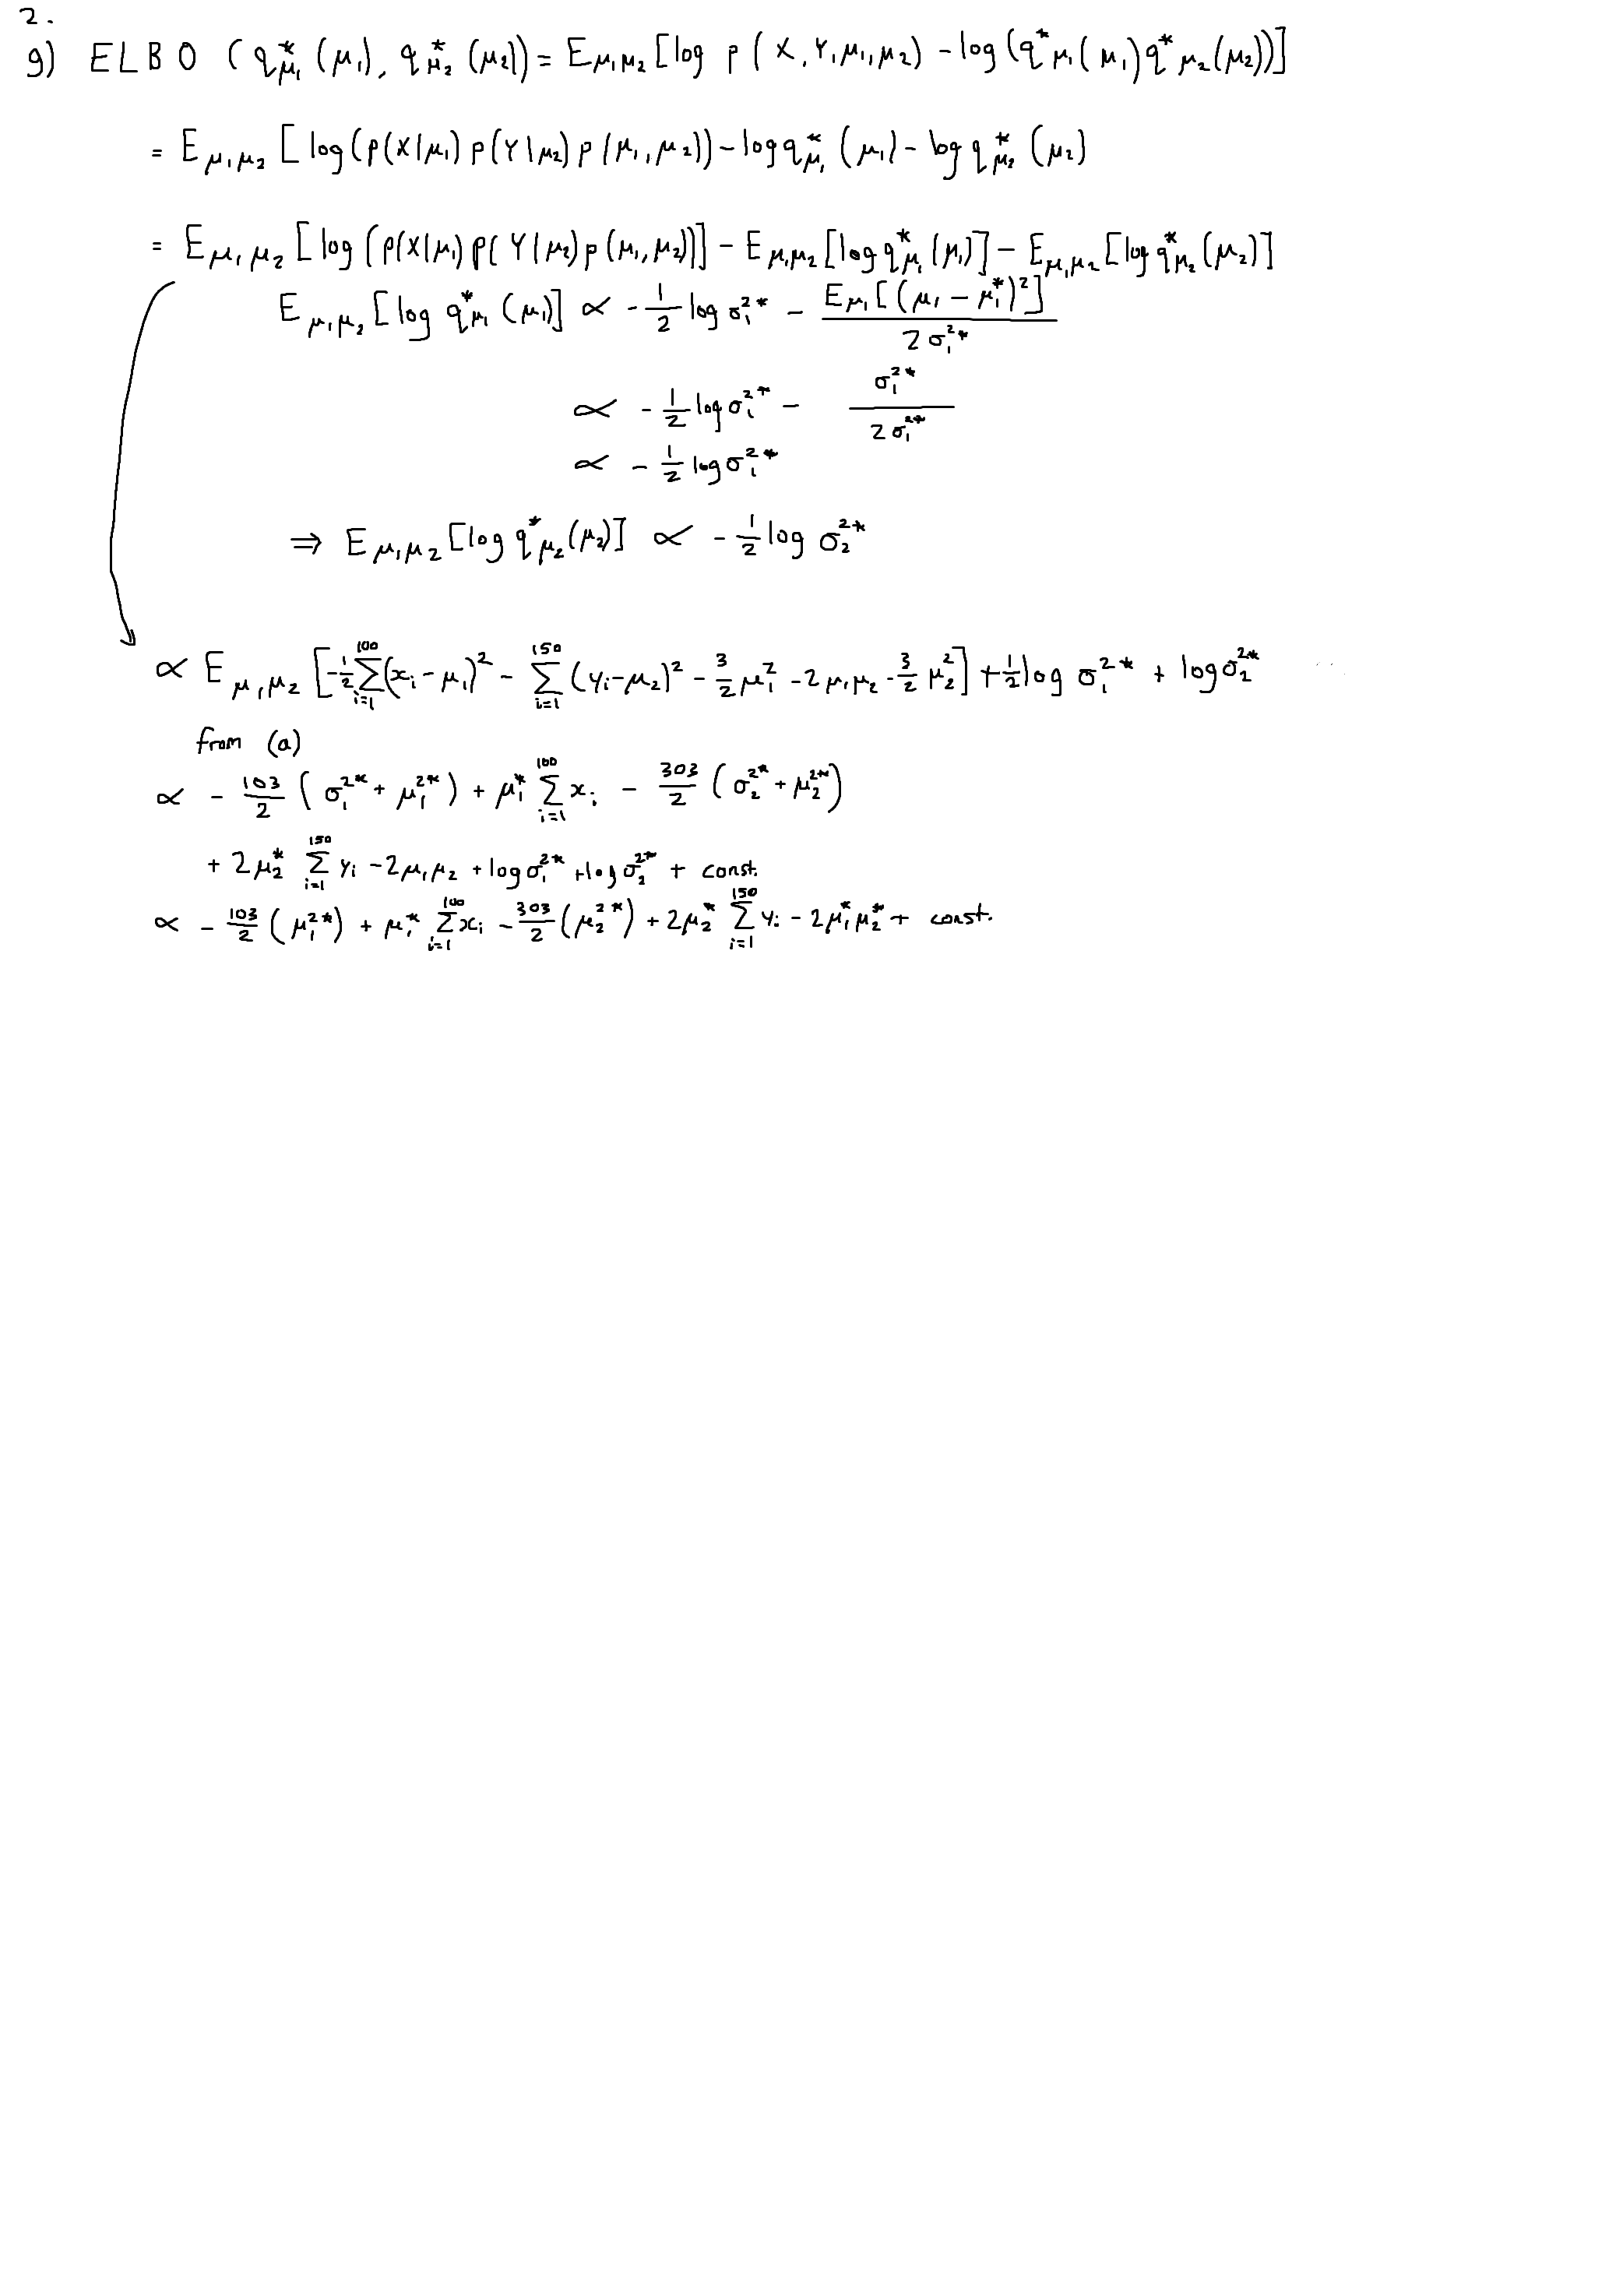 2.
g) ELBO (q*_{μ₁}(μ₁), q*_{μ₂}(μ₂)) = E_{μ₁μ₂}[log p(X,Y,μ₁,μ₂) - log(q*_{μ₁}(μ₁)q*_{μ₂}(μ₂))]
= E_{μ₁μ₂}[log(p(X|μ₁)p(Y|μ₂)p(μ₁,μ₂)) - log q*_{μ₁}(μ₁) - log q*_{μ₂}(μ₂)
= E_{μ₁μ₂}[log(p(X|μ₁)p(Y|μ₂)p(μ₁,μ₂))] - E_{μ₁μ₂}[log q*_{μ₁}(μ₁)] - E_{μ₁μ₂}[log q*_{μ₂}(μ₂)]
E_{μ₁μ₂}[log q*_{μ₁}(μ₁)] ∝ -\frac{1}{2} log σ₁^{2*} - \frac{E_{μ₁}[(μ₁ - μ₁*)²]}{2σ₁^{2*}}
∝ -\frac{1}{2} log σ₁^{2*} - \frac{σ₁^{2*}}{2σ₁^{2*}}
∝ -\frac{1}{2} log σ₁^{2*}
⇒ E_{μ₁μ₂}[log q*_{μ₂}(μ₂)] ∝ -\frac{1}{2} log σ₂^{2*}
∝ E_{μ₁μ₂}[-\frac{1}{2}\sum_{i=1}^{100}(x_i - μ₁)² - \sum_{i=1}^{150}(y_i - μ₂)² - \frac{3}{2}μ₁² - 2μ₁μ₂ - \frac{3}{2}μ₂²] + \frac{1}{2} log σ₁^{2*} + log σ₂^{2*}
from (a)
∝ - \frac{103}{2}(σ₁^{2*} + μ₁^{2*}) + μ₁* \sum_{i=1}^{100} x_i - \frac{303}{2}(σ₂^{2*} + μ₂^{2*})
+ 2μ₂* \sum_{i=1}^{150} y_i - 2μ₁μ₂ + log σ₁^{2*} + log σ₂^{2*} + const.
∝ - \frac{103}{2}(μ₁^{2*}) + μ₁* \sum_{i=1}^{100} x_i - \frac{303}{2}(μ₂^{2*}) + 2μ₂* \sum_{i=1}^{150} y_i - 2μ₁*μ₂* + const.